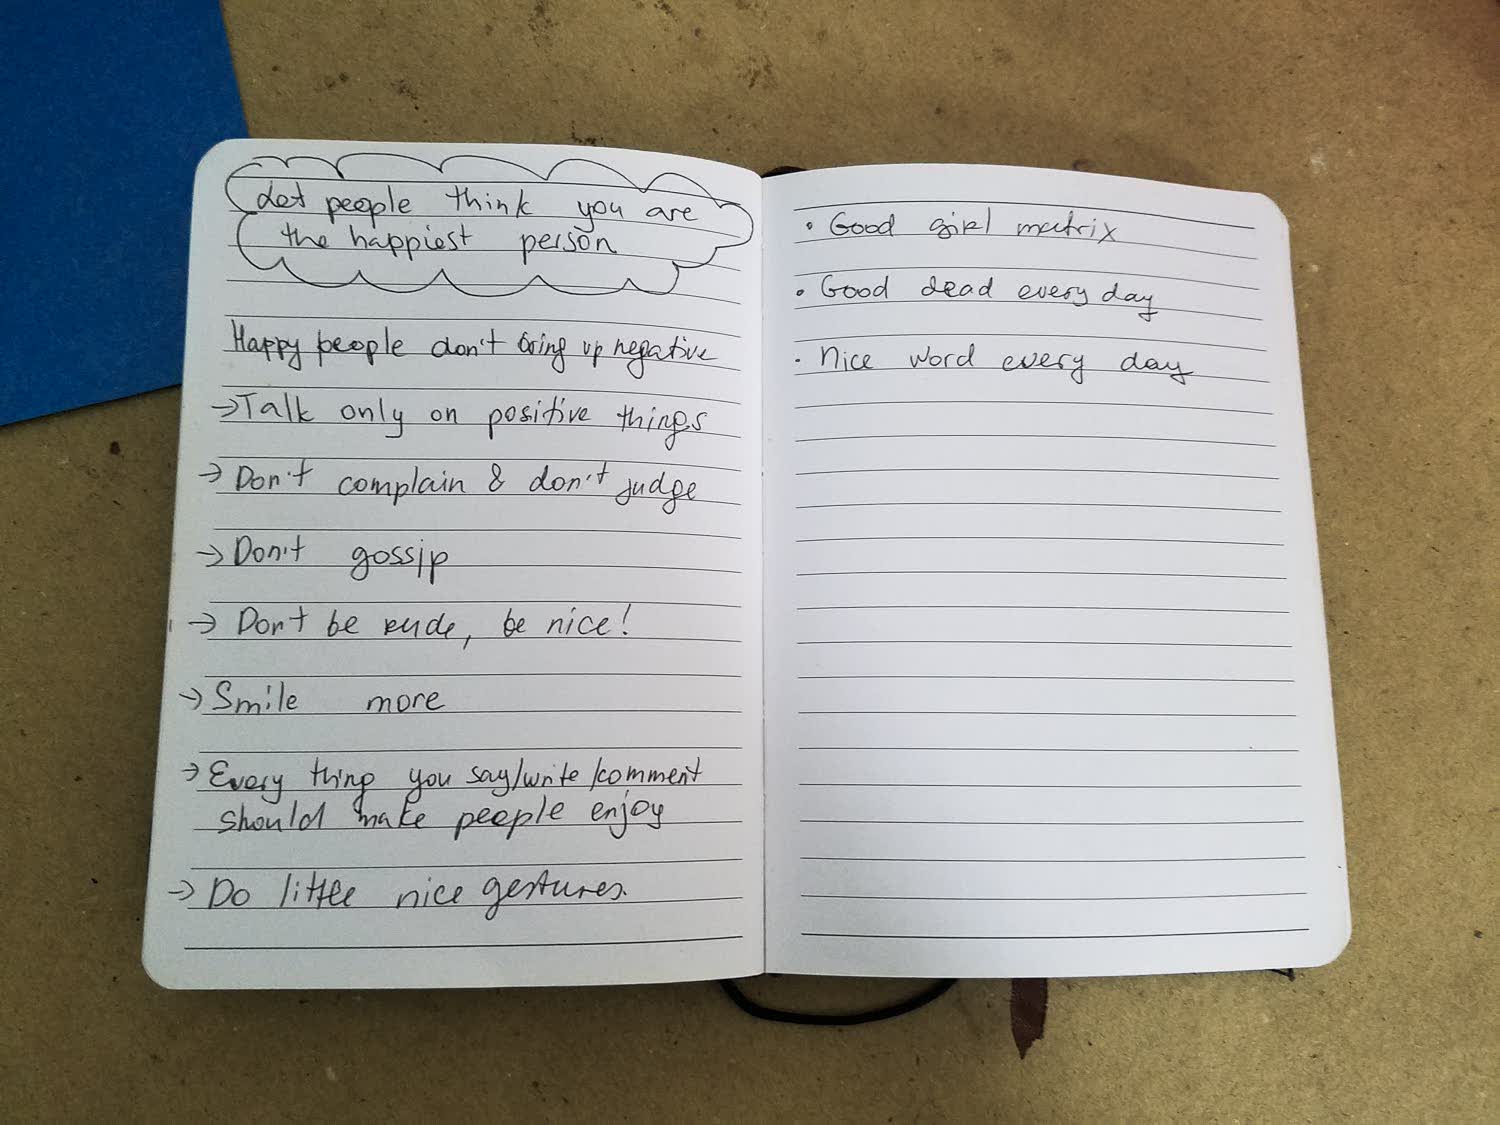 Let people think you are
the happiest person
Happy people don't bring up negative
→Talk only on positive things
→Don't complain & don't judge
→Don't gossip
→Don't be rude, be nice!
→Smile more
→Every thing you say/write/comment
should make people enjoy
→Do little nice gestures.
• Good girl matrix
• Good dead every day
• nice word every day